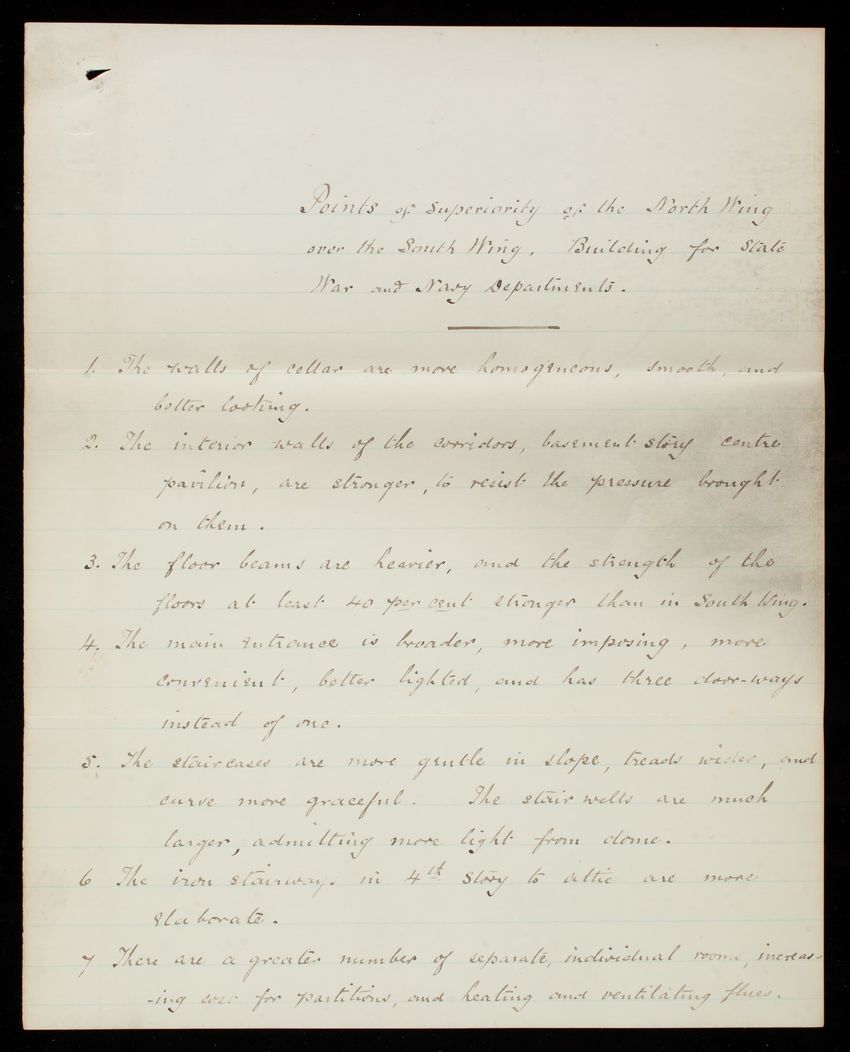 Points of Superiority of the North Wing
over the South Wing. Building for State
War and Navy Departments.
1. The walls of cellar are more homogeneous, smooth, and
better looking.
2. The interior walls of the corridors, basement story centre
pavilion, are stronger, to resist the pressure brought
on them.
3. The floor beams are heavier, and the strength of the
floors at least 40 per cent stronger than in South Wing.
4. The main entrance is broader, more imposing, more
convenient, better lighted, and has three door-ways
instead of one.
5. The staircases are more gentle in slope, treads wider, and
curve more graceful. The stair wells are much
larger, admitting more light from dome.
6 The iron stairways in 4th story to attic are more
elaborate.
7 There are a greater number of separate, individual rooms, increas-
-ing cost for partitions, and heating and ventilating flues.